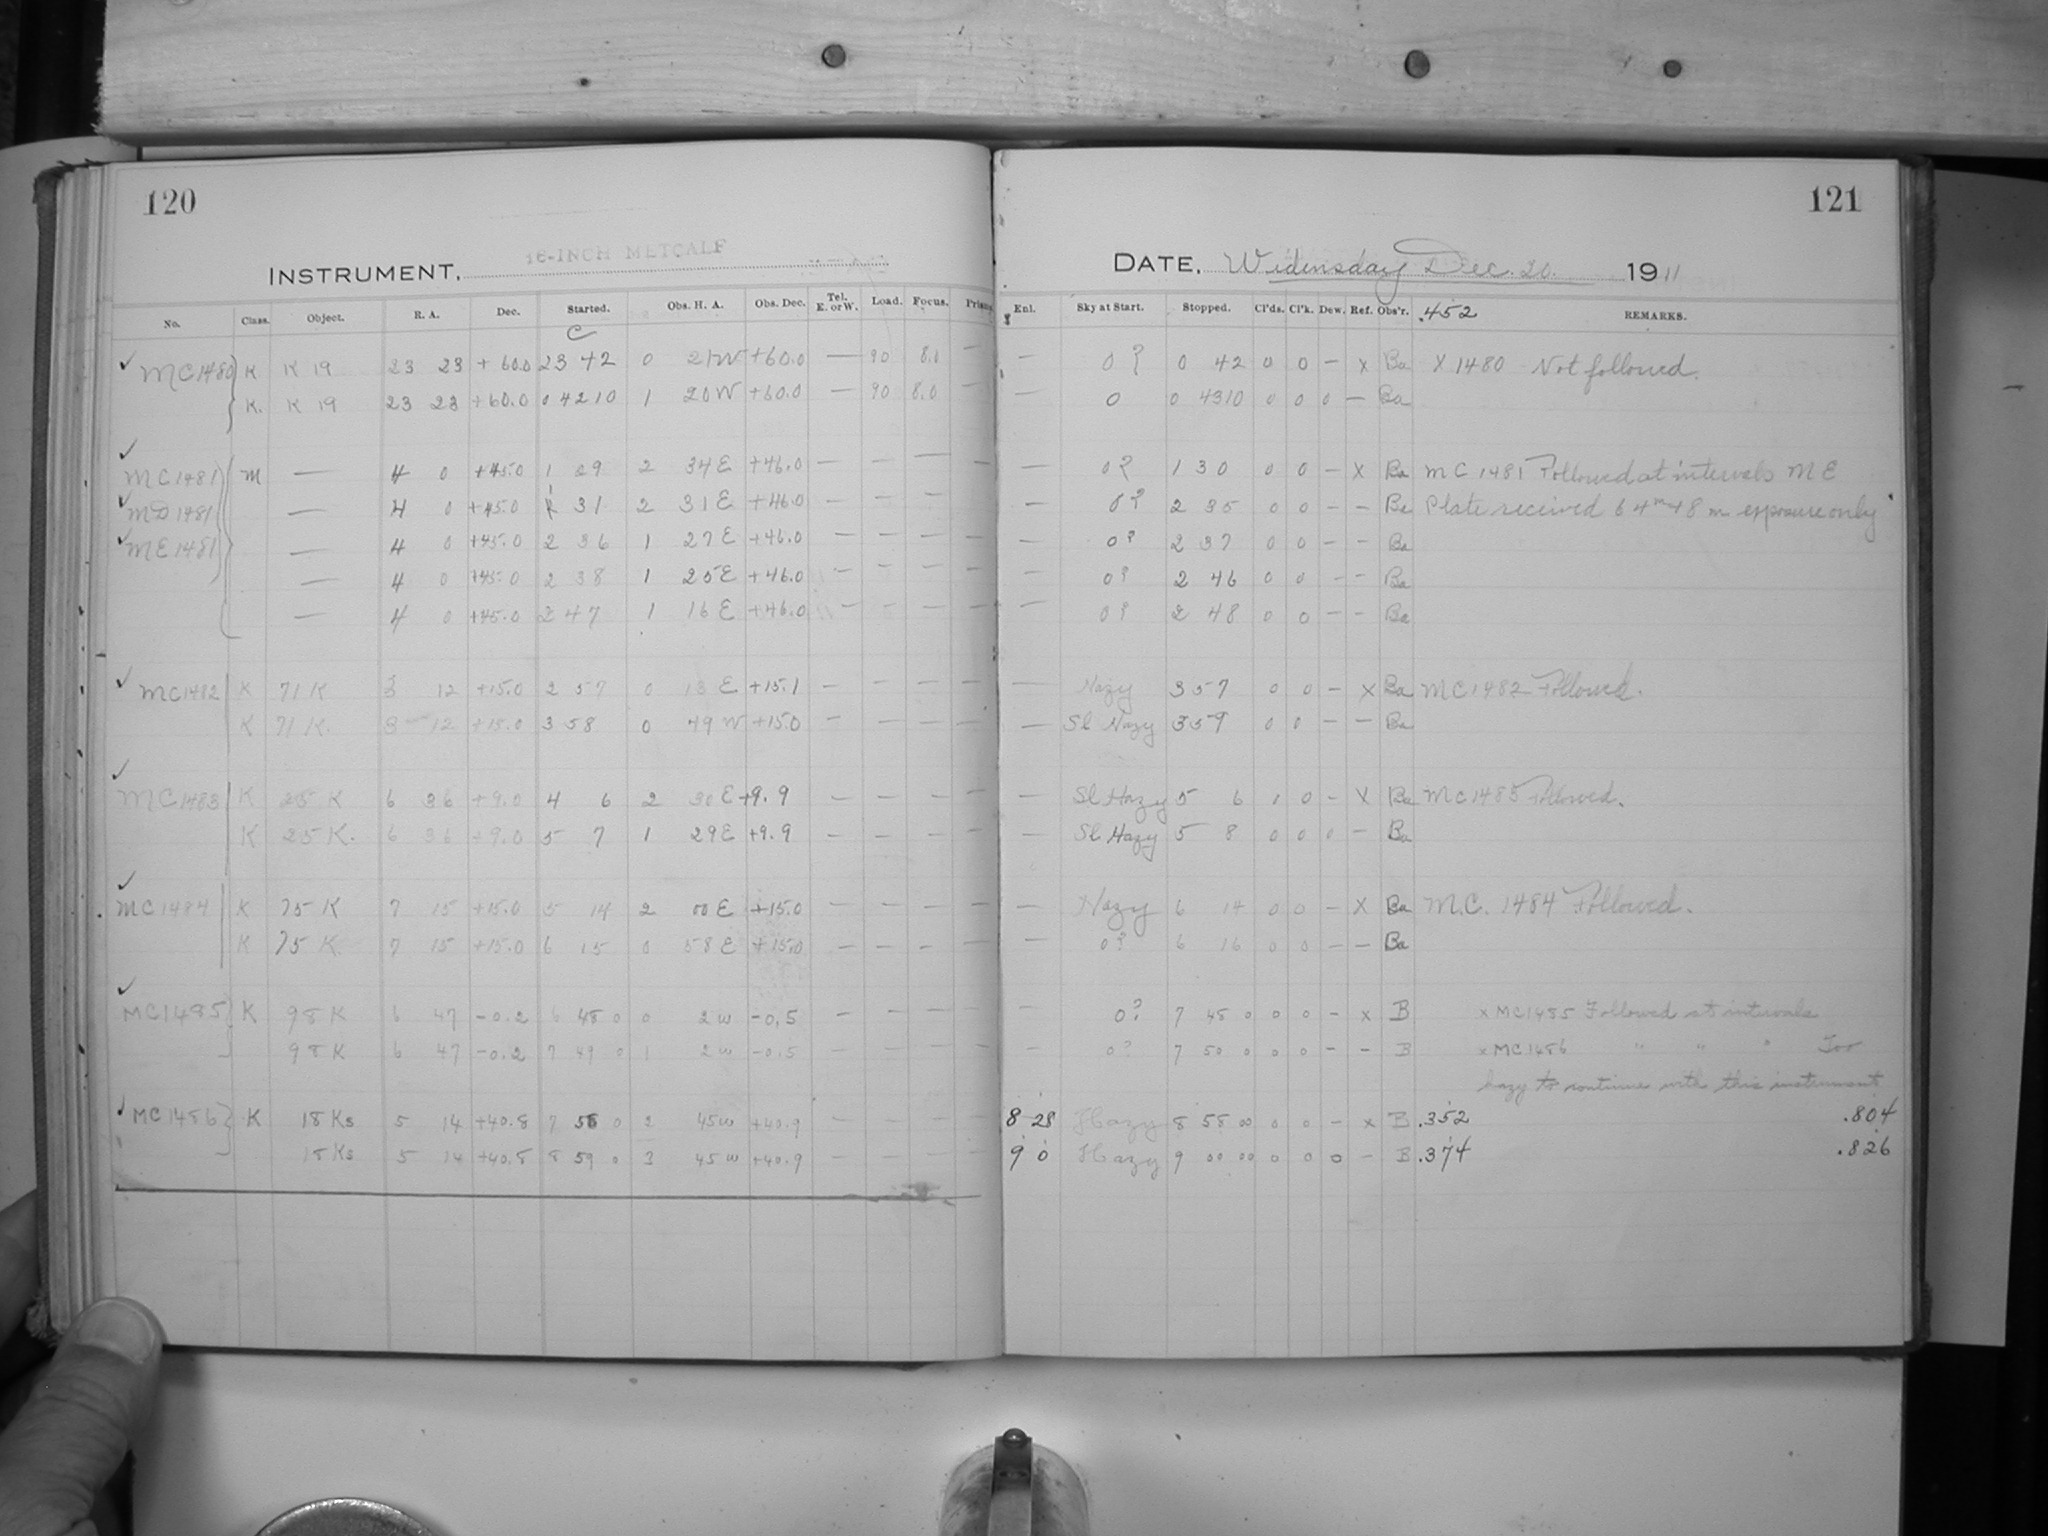 120
16-INCH METCALF
INSTRUMENT.
No. Class. Object. R. A. Dec. Started. Obs. H. A. Obs. Dec. Tel. E. or W. Load. Focus.
C
✓ MC1480 K K 19 23 23 +60.0 23 42 0 21W +60.0 — 90 8.0 —
K. K 19 23 23 +60.0 0 4210 1 20W +60.0 — 90 8.0 —
✓ MC1481 M — 4 0 +45.0 1 29 2 34E +46.0 — — — —
✓ MD1481 — 4 0 +45.0 1 31 2 31E +46.0 — — — —
✓ ME1481 — 4 0 +45.0 2 36 1 27E +46.0 — — — —
— 4 0 +45.0 2 38 1 25E +46.0 — — — —
— 4 0 +45.0 2 47 1 16E +46.0 — — — —
✓ K 71 K 3 12 +15.0 2 57 0 13 E +15.1 — — — —
K 71 K. 3 12 +15.0 3 58 0 49 W +15.0 — — — —
✓ MC1483 K 25 K 6 36 +9.0 4 6 2 30 E +9.9 — — — —
K 25 K. 6 36 +9.0 5 7 1 29E +9.9 — — — —
✓ MC1484 K 75 K 7 15 +15.0 5 14 2 00 E +15.0 — — — —
K 75 K 7 15 +15.0 6 15 0 58 E +15.0 — — — —
✓ MC1485 K 98 K 6 47 -0.2 6 45 0 0 2w -0.5 — — — —
98 K 6 47 -0.2 7 49 0 1 2w -0.5 — — — —
✓ MC1486 K 18 Ks 5 14 +40.8 7 58 0 2 45w +40.9 — — — —
18 Ks 5 14 +40.8 8 59 0 3 45w +40.9 — — — —
121
DATE. Widensday Dec. 20. 1911
Enl. Sky at Start. Stopped. Cl'ds. Cl'k. Dew. Ref. Obs'r. .452 REMARKS.
— 0? 0 42 0 0 — x Ba X 1480 Not followed.
— 0 0 4310 0 0 0 — Ba
— 0? 1 30 0 0 — x Ba MC 1481 Followed at intervals ME
— 0? 2 35 0 0 — — Ba Plate received 64m48 m exposure only
— 0? 2 37 0 0 — — Ba
— 0? 2 46 0 0 — — Ba
— 0? 2 48 0 0 — — Ba
— Hazy 3 57 0 0 — x Ba MC1482 Followed.
— Sl Hazy 3 59 0 0 — — Ba
— Sl Hazy 5 6 1 0 — X Ba MC1485 Followed.
— Sl Hazy 5 8 0 0 0 — Ba
— Hazy 6 14 0 0 — X Ba M.C. 1484 Followed.
— 0? 6 16 0 0 — — Ba
— 0? 7 45 0 0 0 — x B x MC1485 Followed at intervals
— 0? 7 50 0 0 0 — — B x MC1486 " " " Too
hazy to continue with this instrument
8 28 Hazy 8 58 00 0 0 — x B .352 .804
9 0 Hazy 9 00 00 0 0 0 — B .374 .826